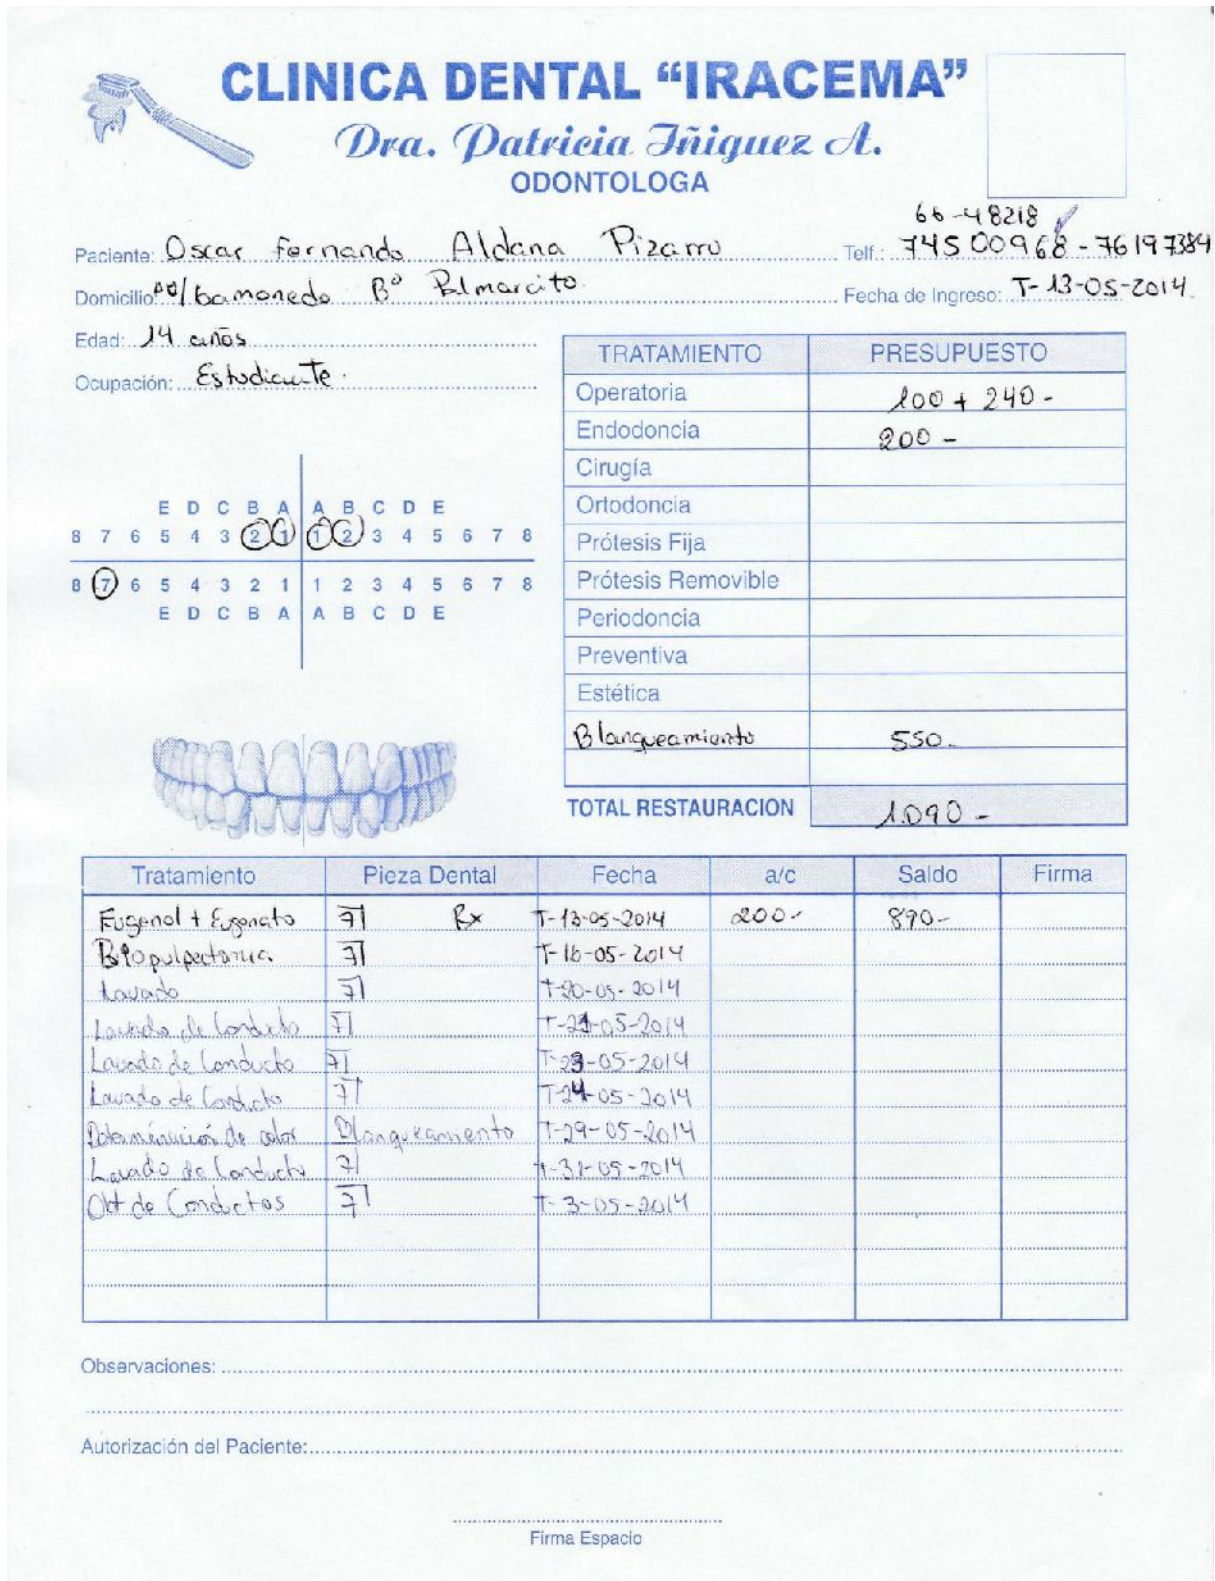 CLINICA DENTAL “IRACEMA”
Dra. Patricia Iñiguez A.
ODONTOLOGA
66-48218
Paciente: Oscar Fernando Aldana Pizarro Telf.: 74500968-76197384
Domicilio: Bamonedo Bº Palmarcito Fecha de Ingreso: T-13-05-2014
Edad: 14 años
Ocupación: Estudiante.
TRATAMIENTO PRESUPUESTO
Operatoria 100 + 240-
Endodoncia 200-
Cirugía
Ortodoncia
Prótesis Fija
Prótesis Removible
Periodoncia
Preventiva
Estética
Blanqueamiento 550-
TOTAL RESTAURACION 1.090-
E D C B A A B C D E
8 7 6 5 4 3 2 1 1 2 3 4 5 6 7 8
8 7 6 5 4 3 2 1 1 2 3 4 5 6 7 8
E D C B A A B C D E
Tratamiento Pieza Dental Fecha a/c Saldo Firma
Eugenol + Eugenato 7 Rx T-13-05-2014 200- 890-
Biopulpectomia 7 T-16-05-2014
Lavado 7 T-20-05-2014
Lavado de Conducto 7 T-21-05-2014
Lavado de Conducto 7 T-23-05-2014
Lavado de Conducto 7 T-24-05-2014
de color Blanqueamiento T-29-05-2014
Lavado de Conducto 7 T-31-05-2014
Obt de Conductos 7 T-3-05-2014
Observaciones:
Autorización del Paciente:
Firma Espacio